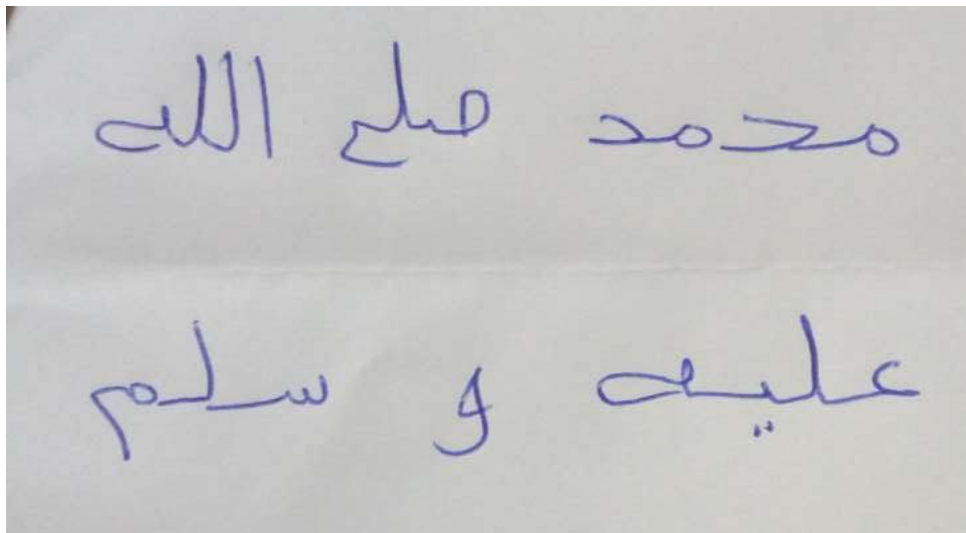 محمد صلى الله
عليه و سلم